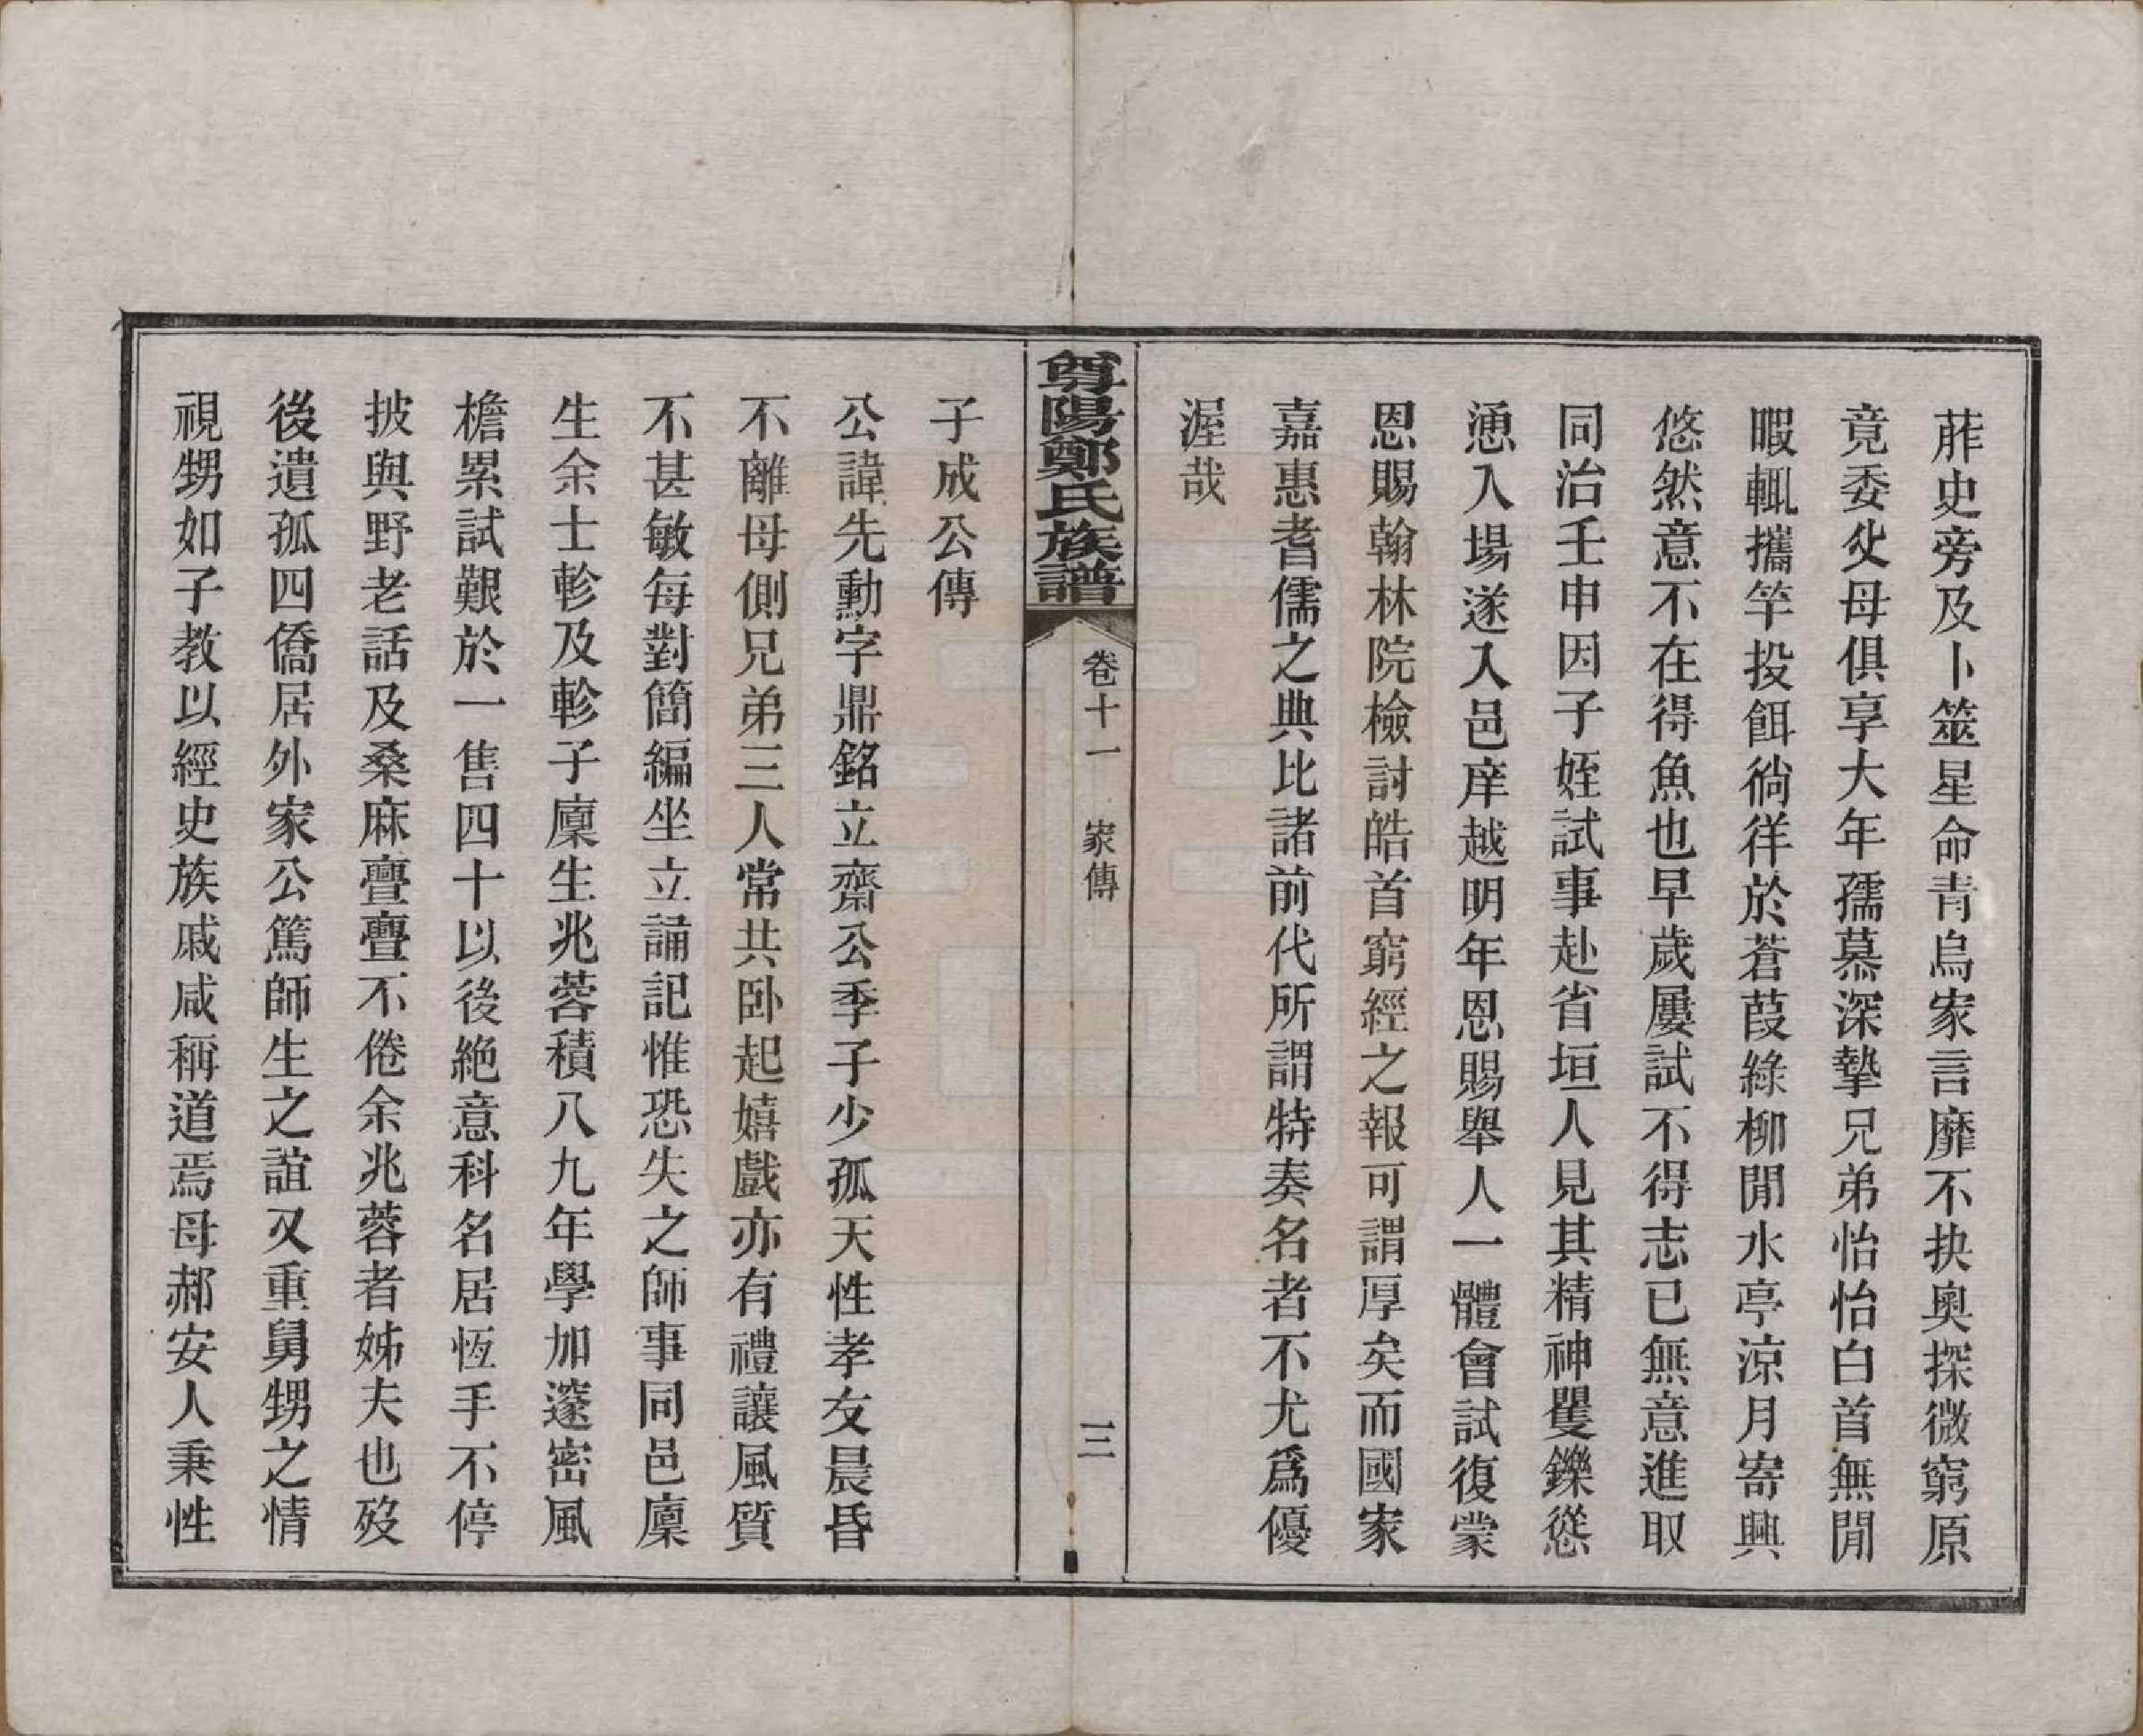 葄史旁及卜筮星命青烏家言靡不抉奧探微窮原
竟委父母俱享大年孺慕深摯兄弟怡怡白首無閒
暇輒攜竿投餌徜徉於蒼葭綠柳閒水亭涼月寄興
悠然意不在得魚也早歲屢試不得志已無意進取
同治壬申因子姪試事赴省垣人見其精神矍鑠慫
慂入場遂入邑庠越明年恩賜舉人一體會試復蒙
恩賜翰林院檢討皓首窮經之報可謂厚矣而國家
嘉惠耆儒之典比諸前代所謂特奏名者不尤爲優
渥哉
尊陽鄭氏族譜 卷十一 家傳 三
子成公傳
公諱先勳字鼎銘立齋公季子少孤天性孝友晨昏
不離母側兄弟三人常共臥起嬉戲亦有禮讓風質
不甚敏每對簡編坐立誦記惟恐失之師事同邑廩
生余士軫及軫子廩生兆蓉積八九年學加邃密風
檐累試艱於一售四十以後絶意科名居恆手不停
披與野老話及桑麻亹亹不倦余兆蓉者姊夫也歿
後遺孤四僑居外家公篤師生之誼又重舅甥之情
視甥如子教以經史族戚咸稱道焉母郝安人秉性